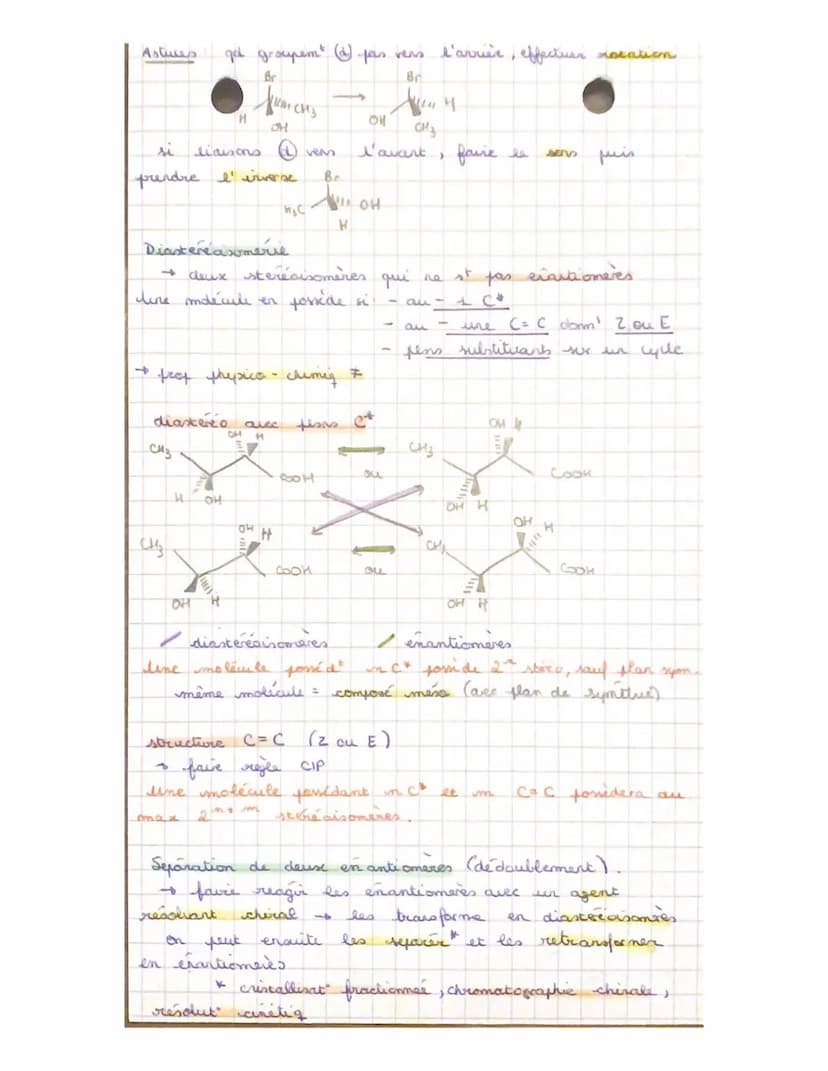 Astuces qd groupemt (d) pas vers l'arrière, effectuer rotation
Br Br
H CH3 → OH H
OH CH3
si liaisons (d) vers l'avant, faire le sens puis
prendre l'inverse Br
H3C OH
H
Diastéréoisomérie
→ deux stéréoisomères qui ne st pas énantiomères
Une molécule en possède si - au - 1 C*
- au - une C=C donnt Z ou E
- psrs substituants sur un cycle
→ prop physico-chimiq ≠
diastéréo avec psrs C*
OH H OH H
CH3 CH3
COOH ou COOH
H OH OH H
OH H OH H
CH3 CH3
COOH ou COOH
OH H OH H
diastéréoisomères énantiomères
Une molécule posséd^t n C* possède 2^n stéréo, sauf plan sym.
même molécule = composé méso (avec plan de symétrie)
structure C=C (Z ou E)
→ faire règle CIP
Une molécule possédant n C* et m C=C possédera au
max 2^n+m stéréoisomères.
Séparation de deux énantiomères (dédoublement).
→ faire réagir les énantiomères avec un agent
résolvant chiral → les transforme en diastéréoisomères
on peut ensuite les séparer* et les retransformer
en énantiomères
* cristallisat° fractionnée, chromatographie chirale,
résolut° cinétiq